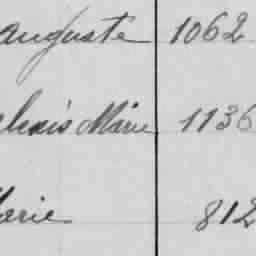 auguste 1062
Marie 1136
Marie 812